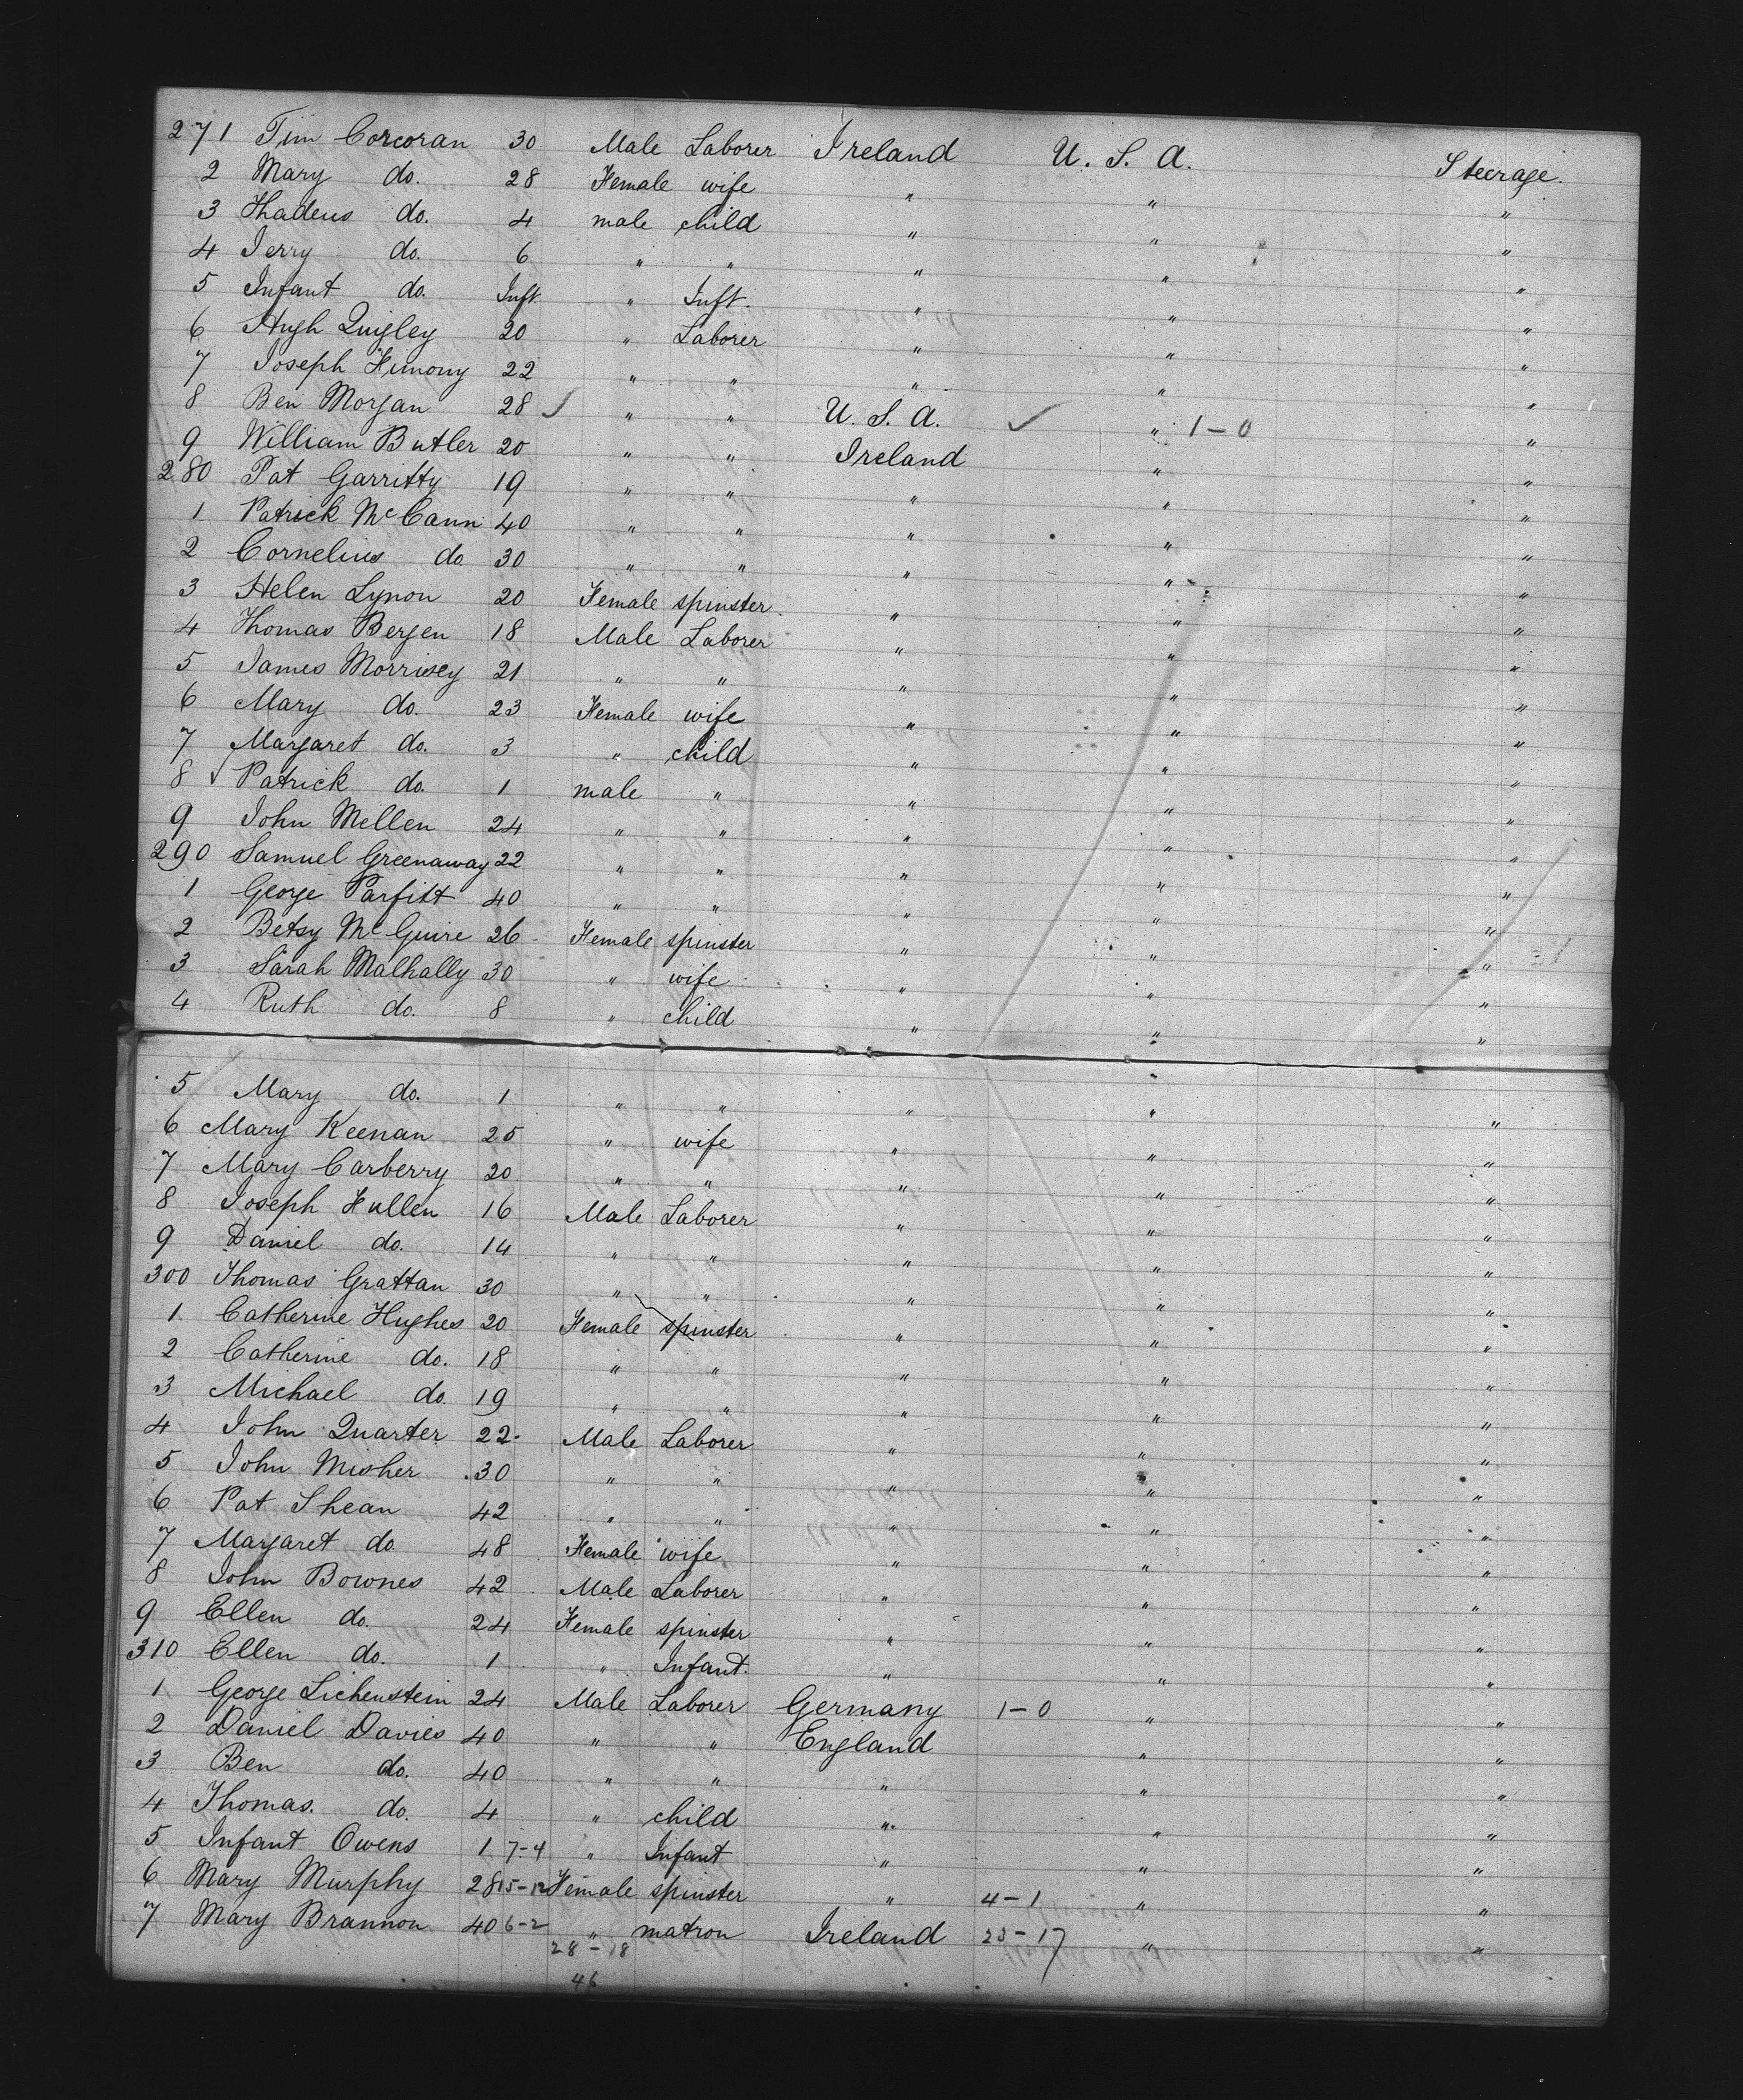 271 Tim Corcoran 30 Male Laborer Ireland U. S. A. Steerage.
2 Mary do. 28 Female wife " " "
3 Thadeus do. 4 male child " " "
4 Jerry do. 6 " " " " "
5 Infant do. Inft " Inft. " " "
6 Hugh Quigley 20 " Laborer " " "
7 Joseph Himony 22 " " " " "
8 Ben Morgan 28 ✓ " " U. S. A. ✓ " 1-0 "
9 William Butler 20 " " Ireland " "
280 Pat Garritty 19 " " " " "
1 Patrick McCann 40 " " " " "
2 Cornelius do. 30 " " " " "
3 Helen Lynon 20 Female spinster " " "
4 Thomas Bergen 18 Male Laborer " " "
5 James Morrisey 21 " " " " "
6 Mary do. 23 Female wife " " "
7 Margaret do. 3 " child " " "
8 ✓ Patrick do. 1 male " " " "
9 John Mellen 24 " " " " "
290 Samuel Greenaway 22 " " " " "
1 George Parfitt 40 " " " " "
2 Betsy McGuire 26 Female spinster " " "
3 Sarah Malhally 30 " wife " " "
4 Ruth do. 8 " child " " "
5 Mary do. 1 " " " " "
6 Mary Keenan 25 " wife " " "
7 Mary Carberry 20 " " " " "
8 Joseph Hullen 16 Male Laborer " " "
9 Daniel do. 14 " " " " "
300 Thomas Grattan 30 " " " " "
1 Catherine Hughes 20 Female spinster " " "
2 Catherine do. 18 " " " " "
3 Michael do. 19 " " " " "
4 John Quarter 22 Male Laborer " " "
5 John Misher 30 " " " " "
6 Pat Shean 42 " " " " "
7 Margaret do 48 Female wife " " "
8 John Bownes 42 Male Laborer " " "
9 Ellen do. 24 Female spinster " " "
310 Ellen do. 1 " Infant. " " "
1 George Lichenstein 24 Male Laborer Germany 1-0 " "
2 Daniel Davies 40 " " England " "
3 Ben do. 40 " " " " "
4 Thomas. do. 4 " child " " "
5 Infant Owens 1 7-4 " Infant " " "
6 Mary Murphy 28 15-12 Female spinster " 4-1 " "
7 Mary Brannon 40 6-2 " matron Ireland 23-17 " "
28-18
46